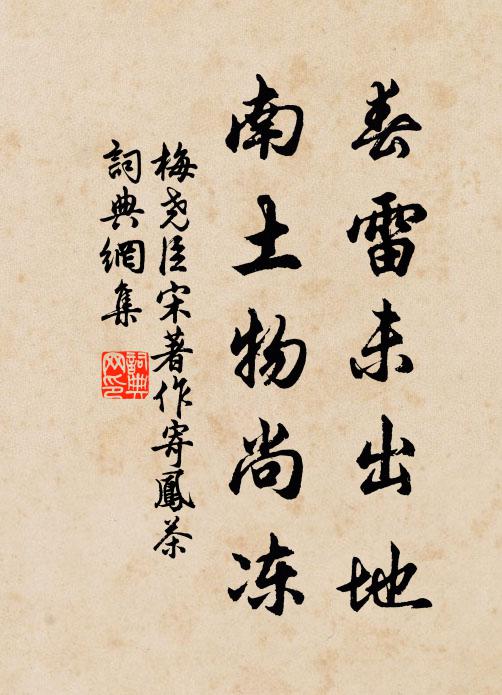 春雷未出地
南土物尚冻
梅尧臣宋著作寄鳳茶
詞典網集
詞典网印